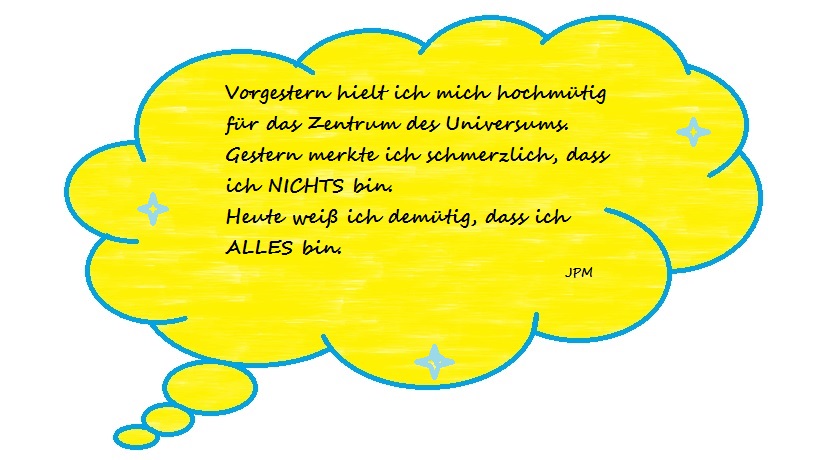 Vorgestern hielt ich mich hochmütig
für das Zentrum des Universums.
Gestern merkte ich schmerzlich, dass
ich NICHTS bin.
Heute weiß ich demütig, dass ich
ALLES bin.
JPM